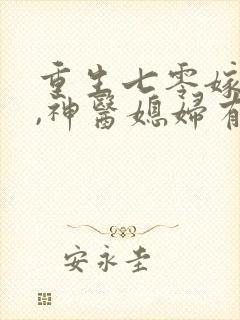 重生七零嫁
,神醫媳婦有
安永圭